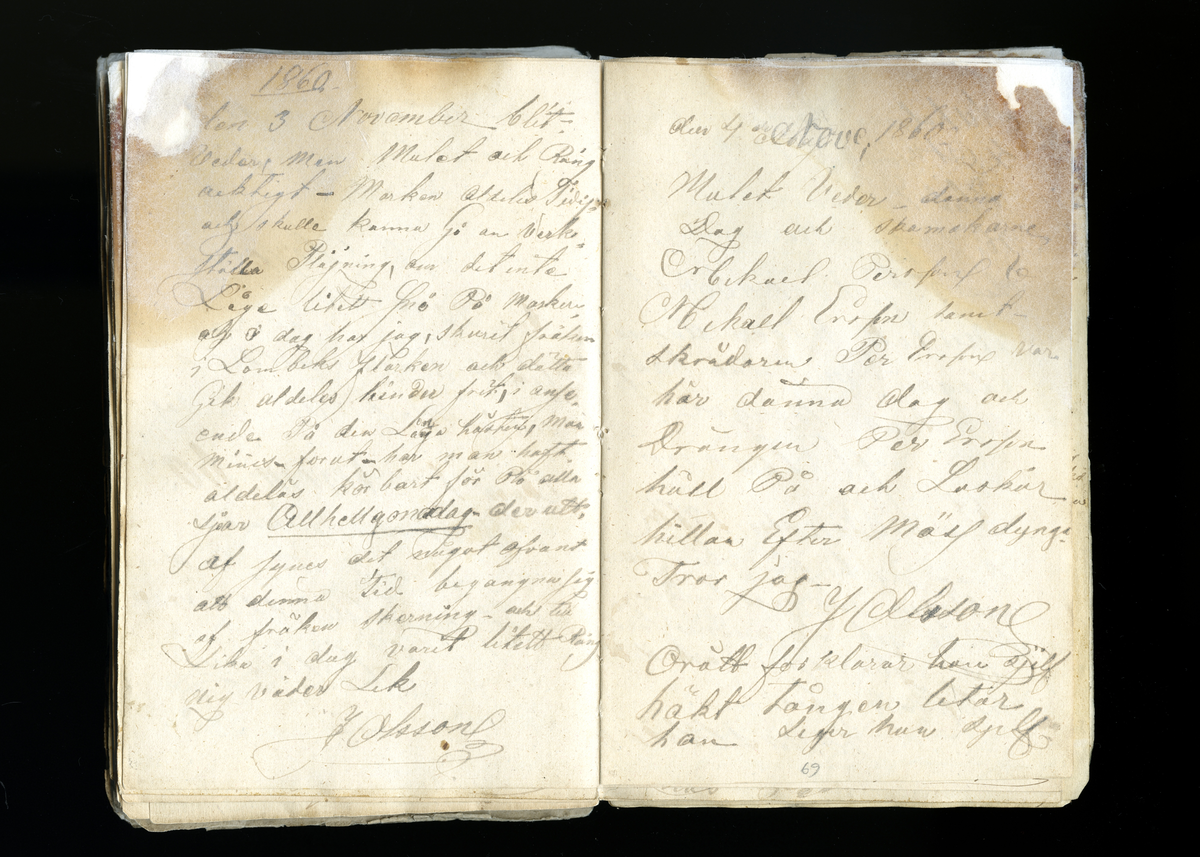 1860.
den 3 November blit-
Veder, Men Mulet och Räng
acktigt - Marken aldeles
och skulle kunna Gå an Verk-
ställa Plöjning, om det inte
Läge litet Snö På Marken
i dag har jag, skurit fräken
i flarken och detta
Gik aldeles hinder frit, i anse-
ende På den Länga hösten,
Mines forut har man haft
aldeles körbart för På alla
sjöar Allhelgondag der utt,
af synes det något ovant
att denna Tid begangna sig
af fräken skerning - och
Lika i dag varit litett Räng
nig väder Lik
J Olsson
den 4 Nove, 1860
Mulet Veder - danna
Dag och
Mickael Persson &
Mikael Ersson samt-
skrädaren Per Ersson var
här danna dag och
Drängen Per Ersson
hull På och Laskar
hillan Efter Mäss dynga
Tror jag -
J Olsson
Orätt forklarar han sjelf
häkt tången letar
han Seger han Sjelf
69